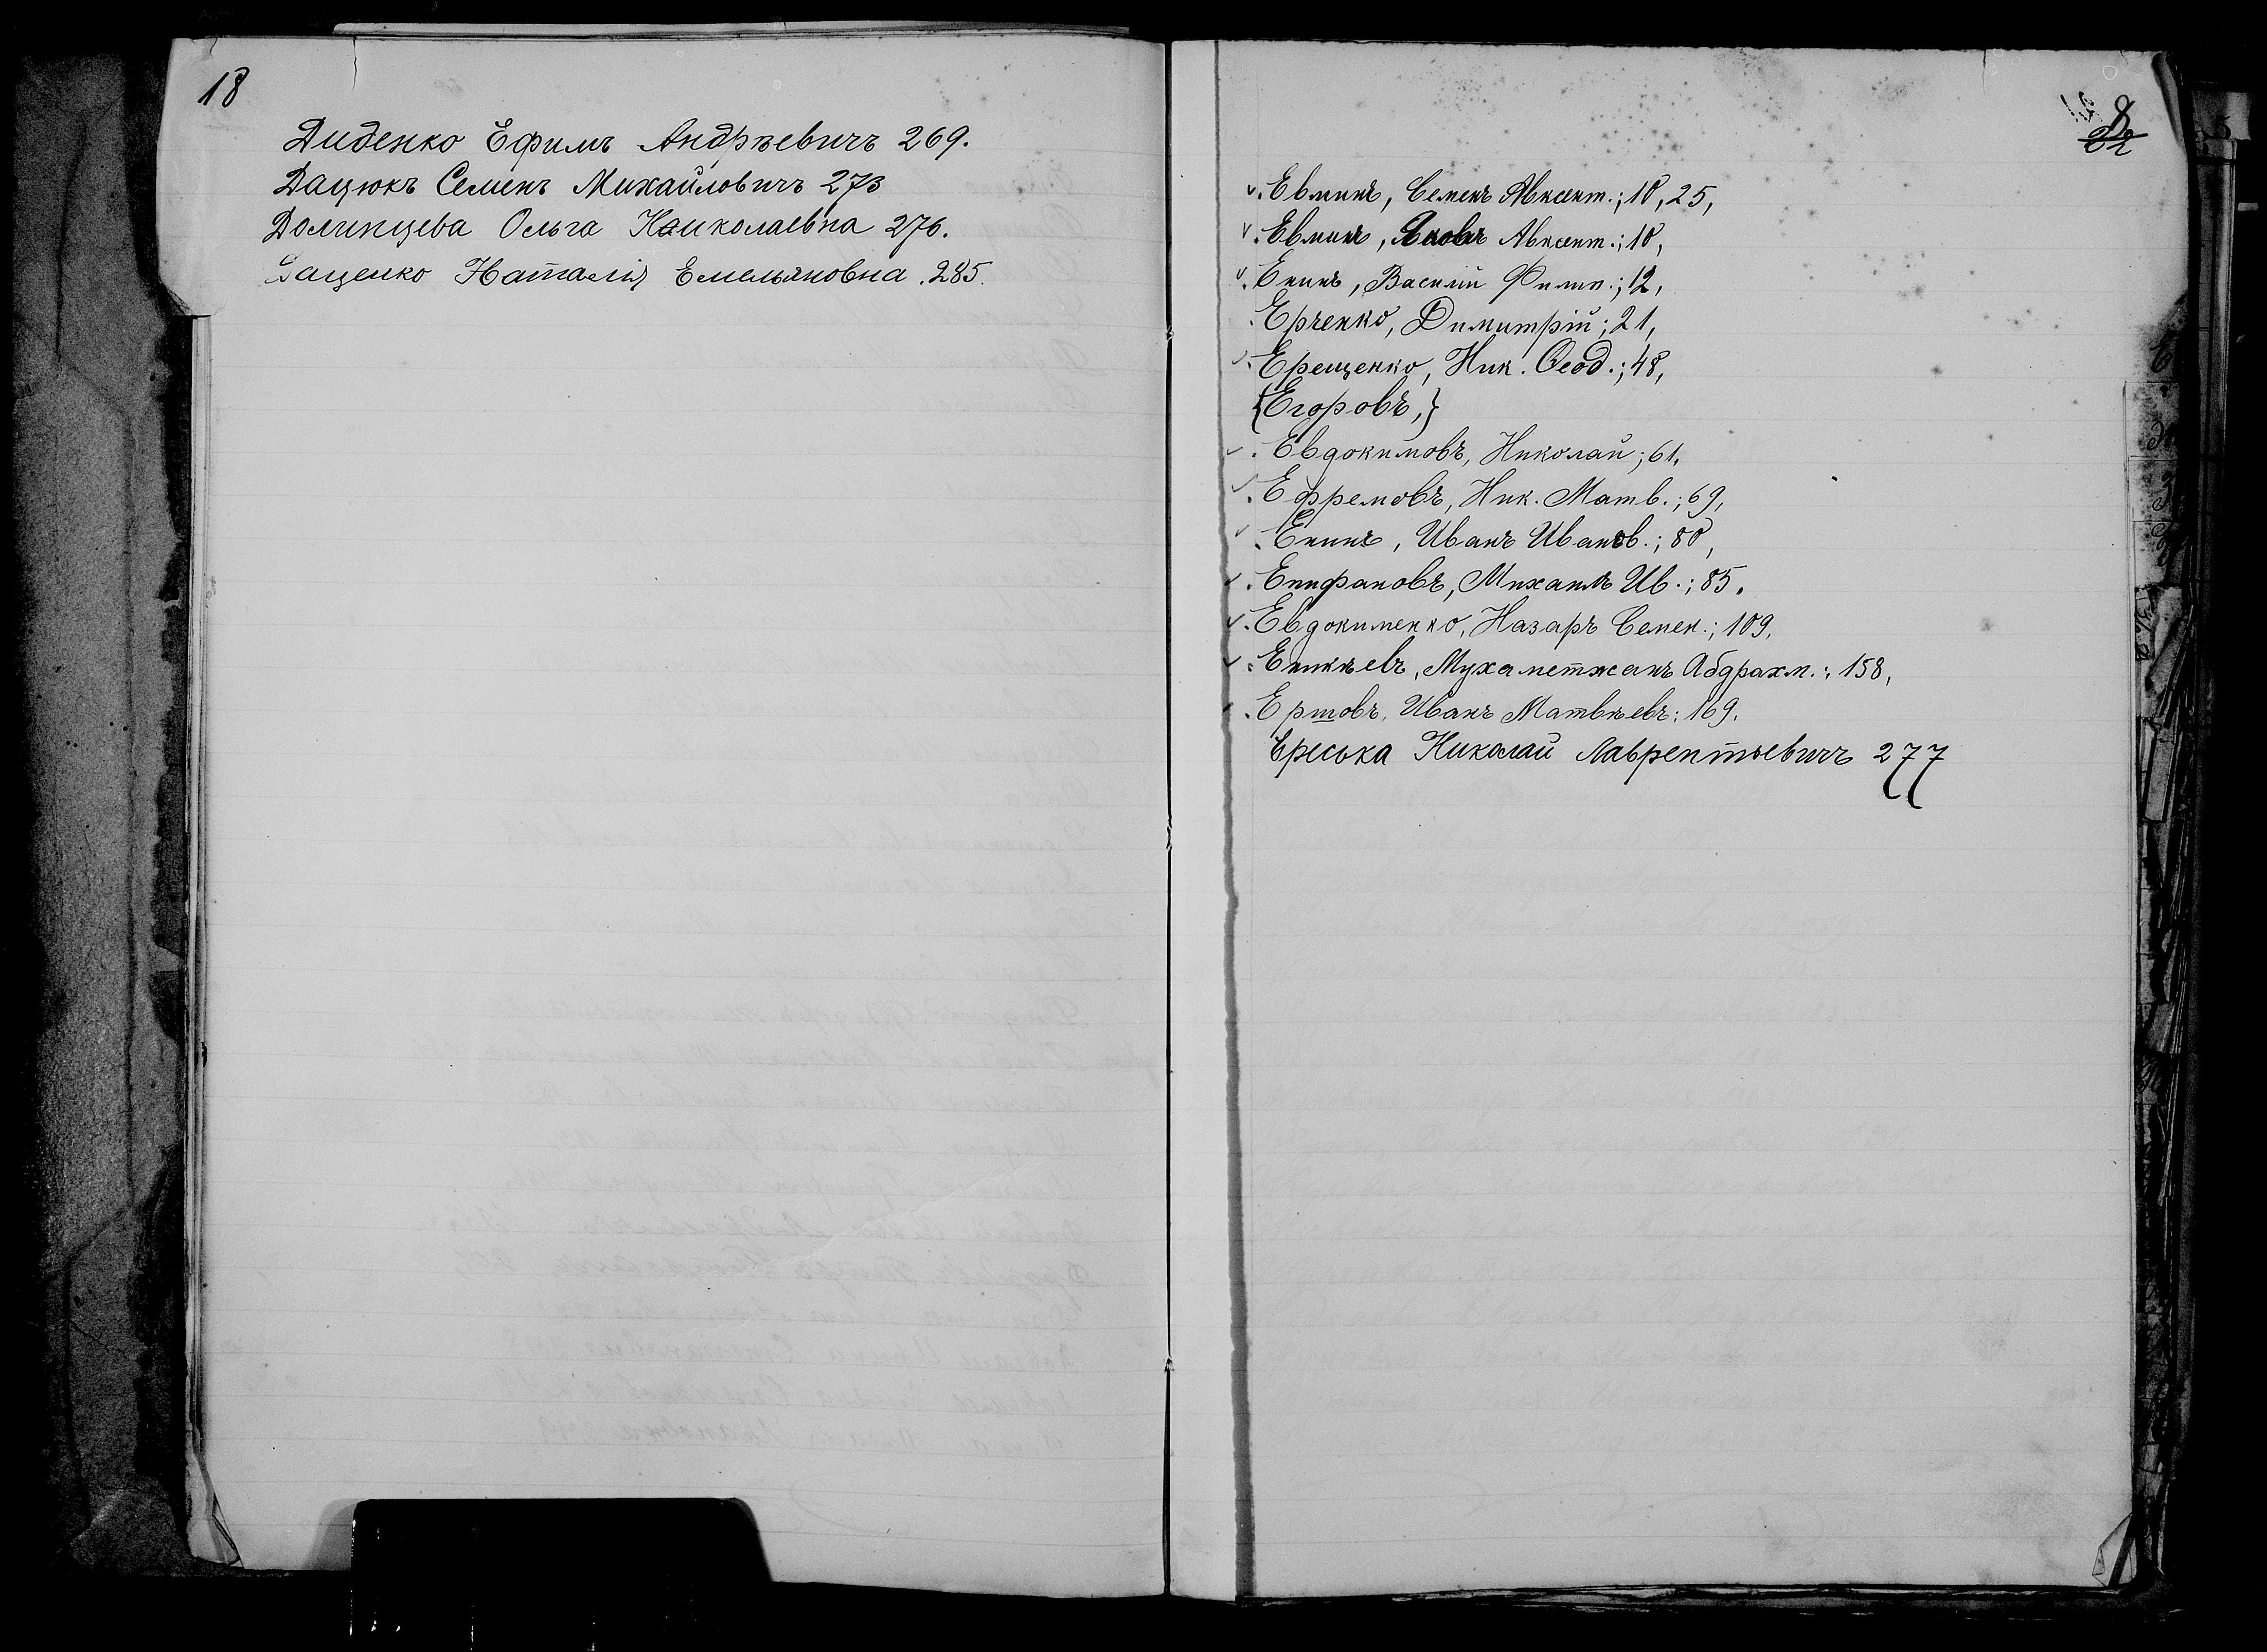 18
Диденко Ефимъ Андрѣевичъ 269.
Дацюкъ Семенъ Михайловичъ 273
Долинцева Ольга Николаевна 276.
Даценко Наталія Емельяновна. 285.
Евминъ, Семенъ Авксент.; 10, 25,
Евминъ, Яковъ Авксент.; 10,
Енинъ, Василій Филип.; 12,
Ерченко, Димитрій; 21,
Ерещенко, Ник. Ѳеод.; 48,
{Егоровъ,}
Евдокимовъ, Николай; 61,
Ефремовъ, Ник. Матв.; 69,
Енинъ, Иванъ Иванов.; 80,
Епифановъ, Михаилъ Ив.; 85.
Евдокименко, Назаръ Семен.; 109,
Еникѣевъ, Мухаметжанъ Абдрахм.; 158,
Ершовъ, Иванъ Матвѣевъ; 169.
Ереська Николай Лаврентьевичъ 277